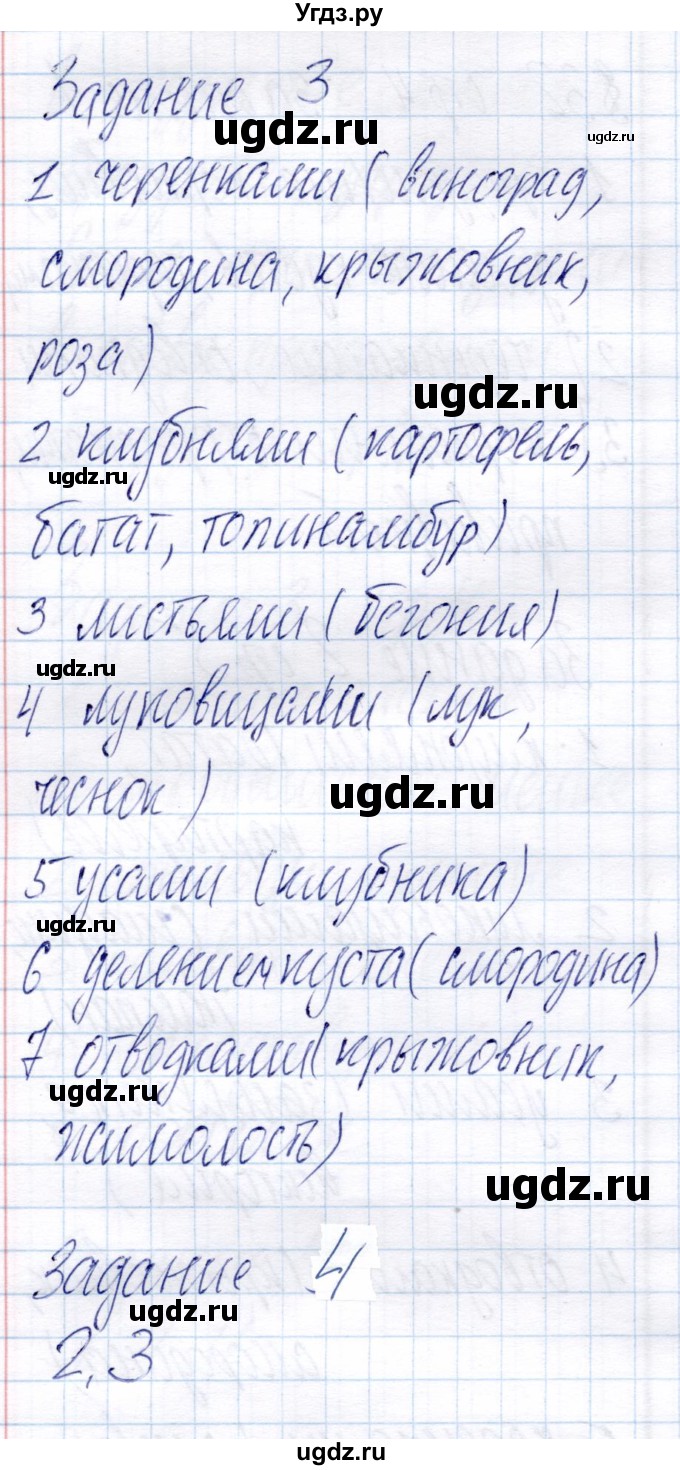 Угдз.ру
Задание 3
ugdz.ru
ugdz.ru
1 черенками (виноград,
смородина, крыжовник,
роза)
ugdz.ru
2 клубнями (картофель,
ugdz.ru
батат, топинамбур)
3 листьями (бегония)
ugdz.ru
4 луковицами (лук,
чеснок)
ugdz.ru
5 усами (клубника)
ugdz.ru
6 делением куста (смородина)
7 отводками (крыжовник,
ugdz.ru
жимолость)
ugdz.ru
Задание 4
ugdz.ru
2,3
ugdz.ru